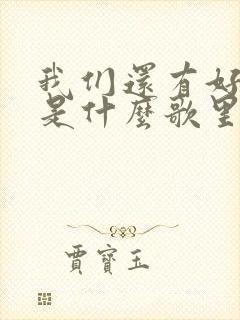 我们還有好
是什麼歌里
賈寶玉